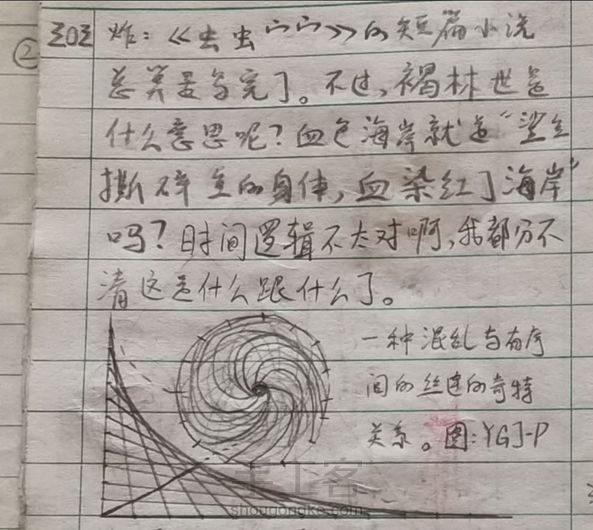 ②
炸：《虫虫宀宀》的短篇小说
总算是写完了。不过，褐林世是
什么意思呢？血色海岸就是“鲨鱼
撕碎鱼的身体，血染红了海岸”
吗？时间逻辑不太对啊，我都分不
清这是什么跟什么了。
一种混乱与有序
间的丝连的奇特
关系。图：YGJ-P
手工客
shougongke.com